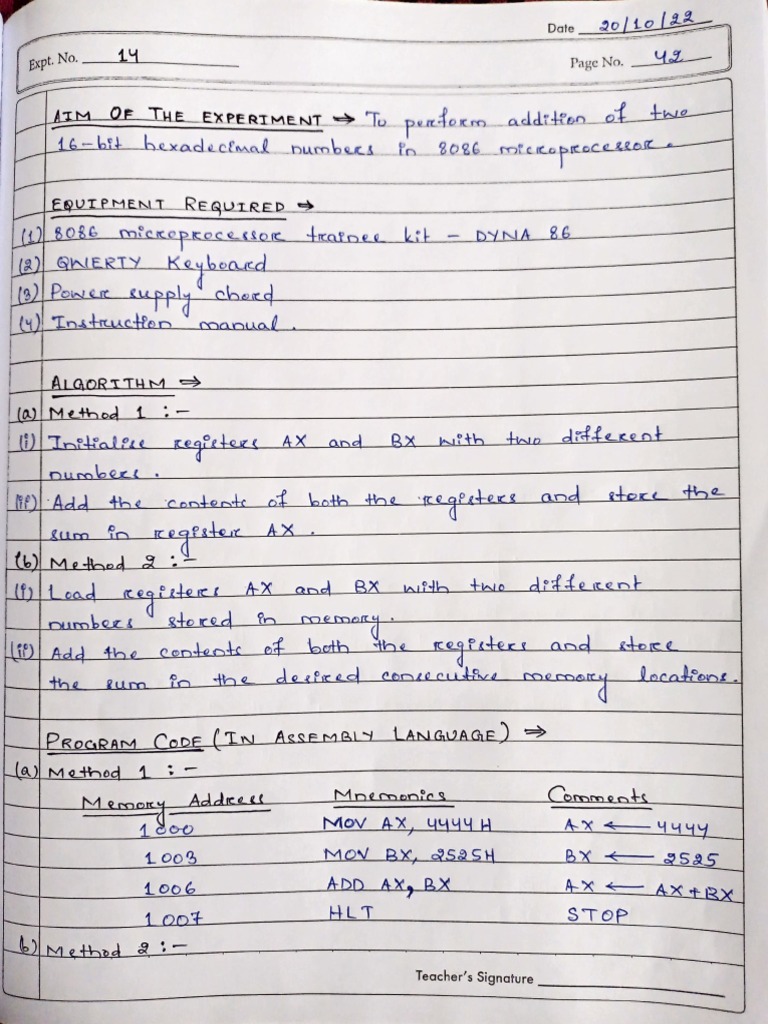 Date 20/10/22
Expt. No. 14
Page No. 42
AIM OF THE EXPERIMENT → To perform addition of two
16-bit hexadecimal numbers in 8086 microprocessor.
EQUIPMENT REQUIRED →
(1) 8086 microprocessor trainee kit - DYNA 86
(2) QWERTY Keyboard
(3) Power supply chord
(4) Instruction manual.
ALGORITHM ⇒
(a) Method 1 :-
(i) Initialise registers AX and BX with two different
numbers.
(ii) Add the contents of both the registers and store the
sum in register AX.
(b) Method 2 :-
(i) Load registers AX and BX with two different
numbers stored in memory.
(ii) Add the contents of both the registers and store
the sum in the desired consecutive memory locations.
PROGRAM CODE (IN ASSEMBLY LANGUAGE) ⇒
(a) Method 1 :-
Memory Address Mnemonics Comments
1000 MOV AX, 4444H AX ← 4444
1003 MOV BX, 2525H BX ← 2525
1006 ADD AX, BX AX ← AX+BX
1007 HLT STOP
(b) Method 2 :-
Teacher's Signature